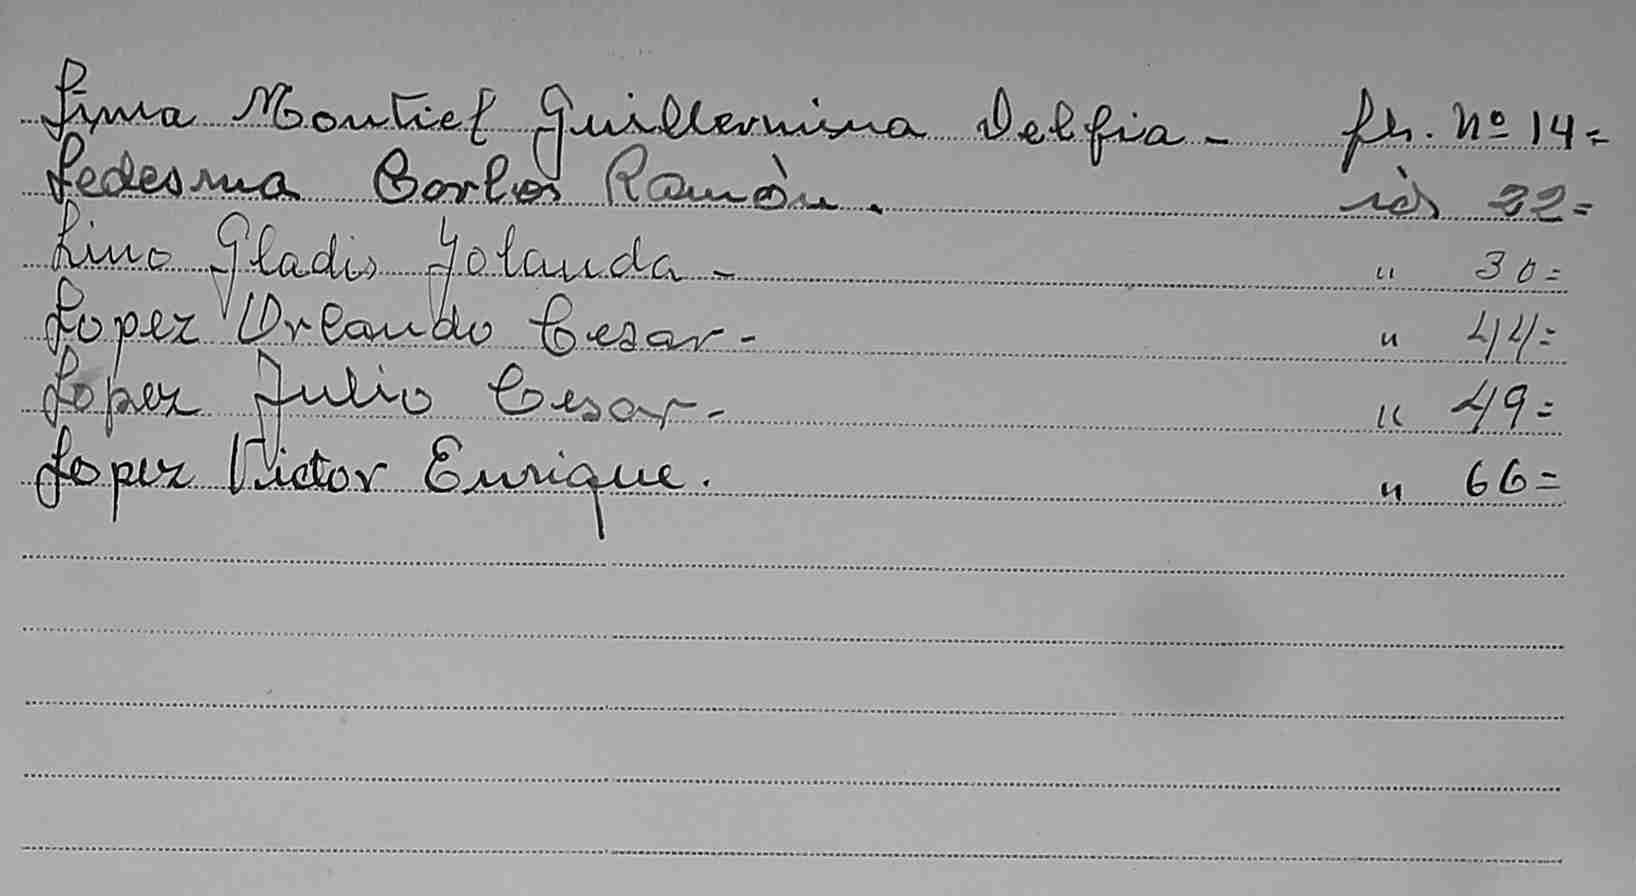 Lima Montiel Guillermina Delfia - fh. Nº 14=
Ledesma Carlos Ramòn. id 22=
Lino Gladis Yolanda - " 30=
Lopez Orlando Cesar - " 44=
Lopez Julio Cesar - " 49=
Lopez Victor Enrique. " 66=